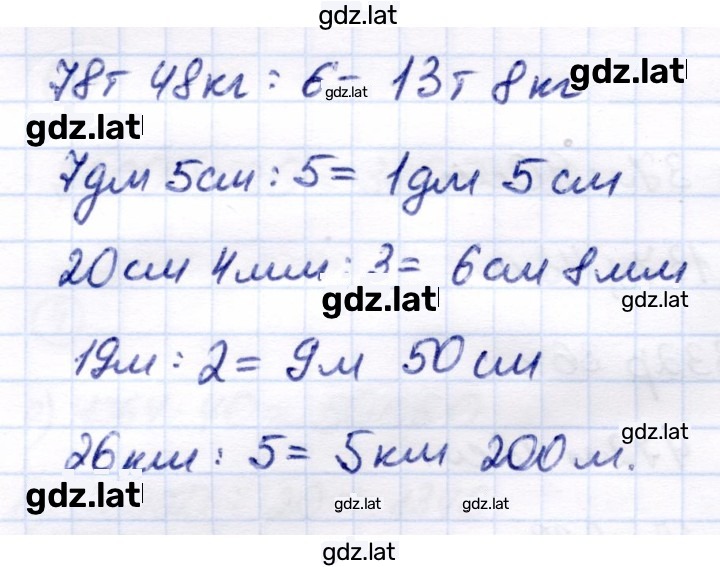 gdz.lat
78т 48кг : 6 = 13т 8кг gdz.lat
gdz.lat
gdz.lat
7дм 5см : 5 = 1дм 5см
20см 4мм : 3 = 6см 8мм
gdz.lat
gdz.lat
19м : 2 = 9м 50см
gdz.lat
26км : 5 = 5км 200м.
gdz.lat
gdz.lat
gdz.lat
gdz.lat